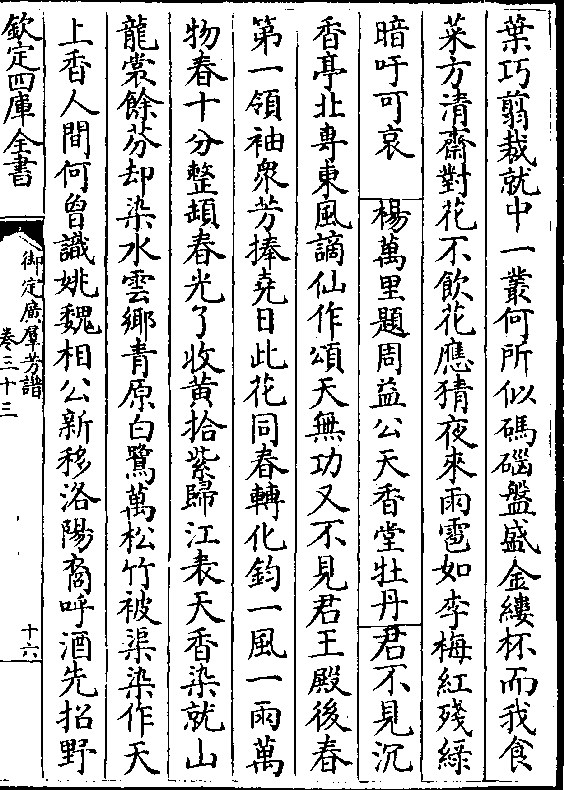 葉巧翦裁就中一叢何所似碼碯盤盛金縷杯而我食
菜方清齋對花不飲花應猜夜來雨雹如李梅紅殘綠
暗吁可哀 楊萬里題周益公天香堂牡丹君不見沉
香亭北專東風謫仙作頌天無功又不見君王殿後春
第一領袖衆芳捧堯日此花同春轉化鈞一風一雨萬
物春十分整頓春光了收黄拾紫歸江表天香染就山
龍裳餘芬却染水雲鄉青原白鷺萬松竹被渠染作天
上香人間何曾識姚魏相公新移洛陽裔呼酒先招野
欽定四庫全書
御定廣羣芳譜
卷三十三
十六